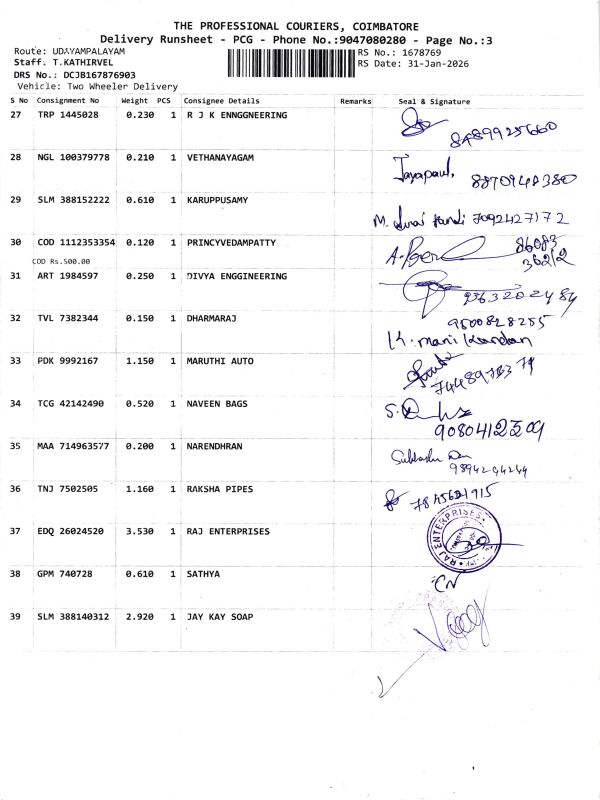 THE PROFESSIONAL COURIERS, COIMBATORE
Delivery Runsheet - PCG - Phone No.:9047080280 - Page No.:3
Route: UDAYAMPALAYAM
Staff: T.KATHIRVEL
DRS No.: DCJB167876903
Vehicle: Two Wheeler Delivery
RS No.: 1678769
RS Date: 31-Jan-2026
S No Consignment No Weight PCS Consignee Details Remarks Seal & Signature
27 TRP 1445028 0.230 1 R J K ENNGGNEERING
28 NGL 100379778 0.210 1 VETHANAYAGAM Jayapaul,
29 SLM 388152222 0.610 1 KARUPPUSAMY 7092427172
30 COD 1112353354 0.120 1 PRINCYVEDAMPATTY 86083
COD Rs.500.00 36212
31 ART 1984597 0.250 1 DIVYA ENGGINEERING
32 TVL 7382344 0.150 1 DHARMARAJ 9500828255
K. mani kandan
33 PDK 9992167 1.150 1 MARUTHI AUTO
34 TCG 42142490 0.520 1 NAVEEN BAGS
35 MAA 714963577 0.200 1 NARENDHRAN
9894244244
36 TNJ 7502505 1.160 1 RAKSHA PIPES 7845621915
37 EDQ 26024520 3.530 1 RAJ ENTERPRISES RAJ ENTERPRISES
38 GPM 740728 0.610 1 SATHYA CN
39 SLM 388140312 2.920 1 JAY KAY SOAP